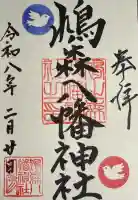 奉拝
鳩森八幡神社
令和八年二月廿日